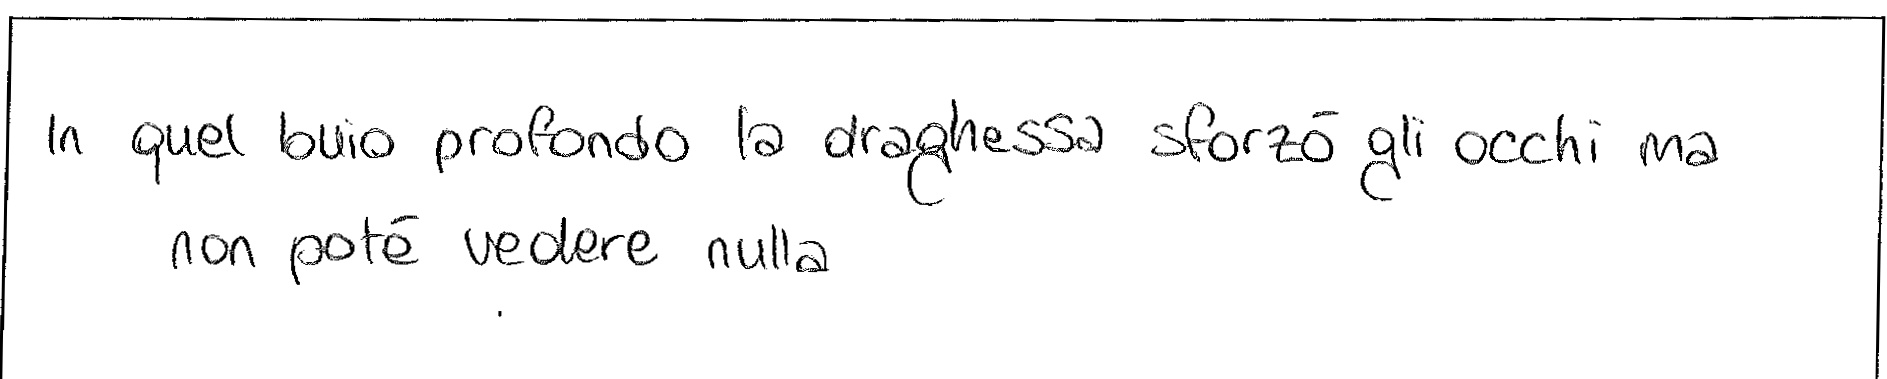 In quel buio profondo la draghessa sforzò gli occhi ma
non poté vedere nulla